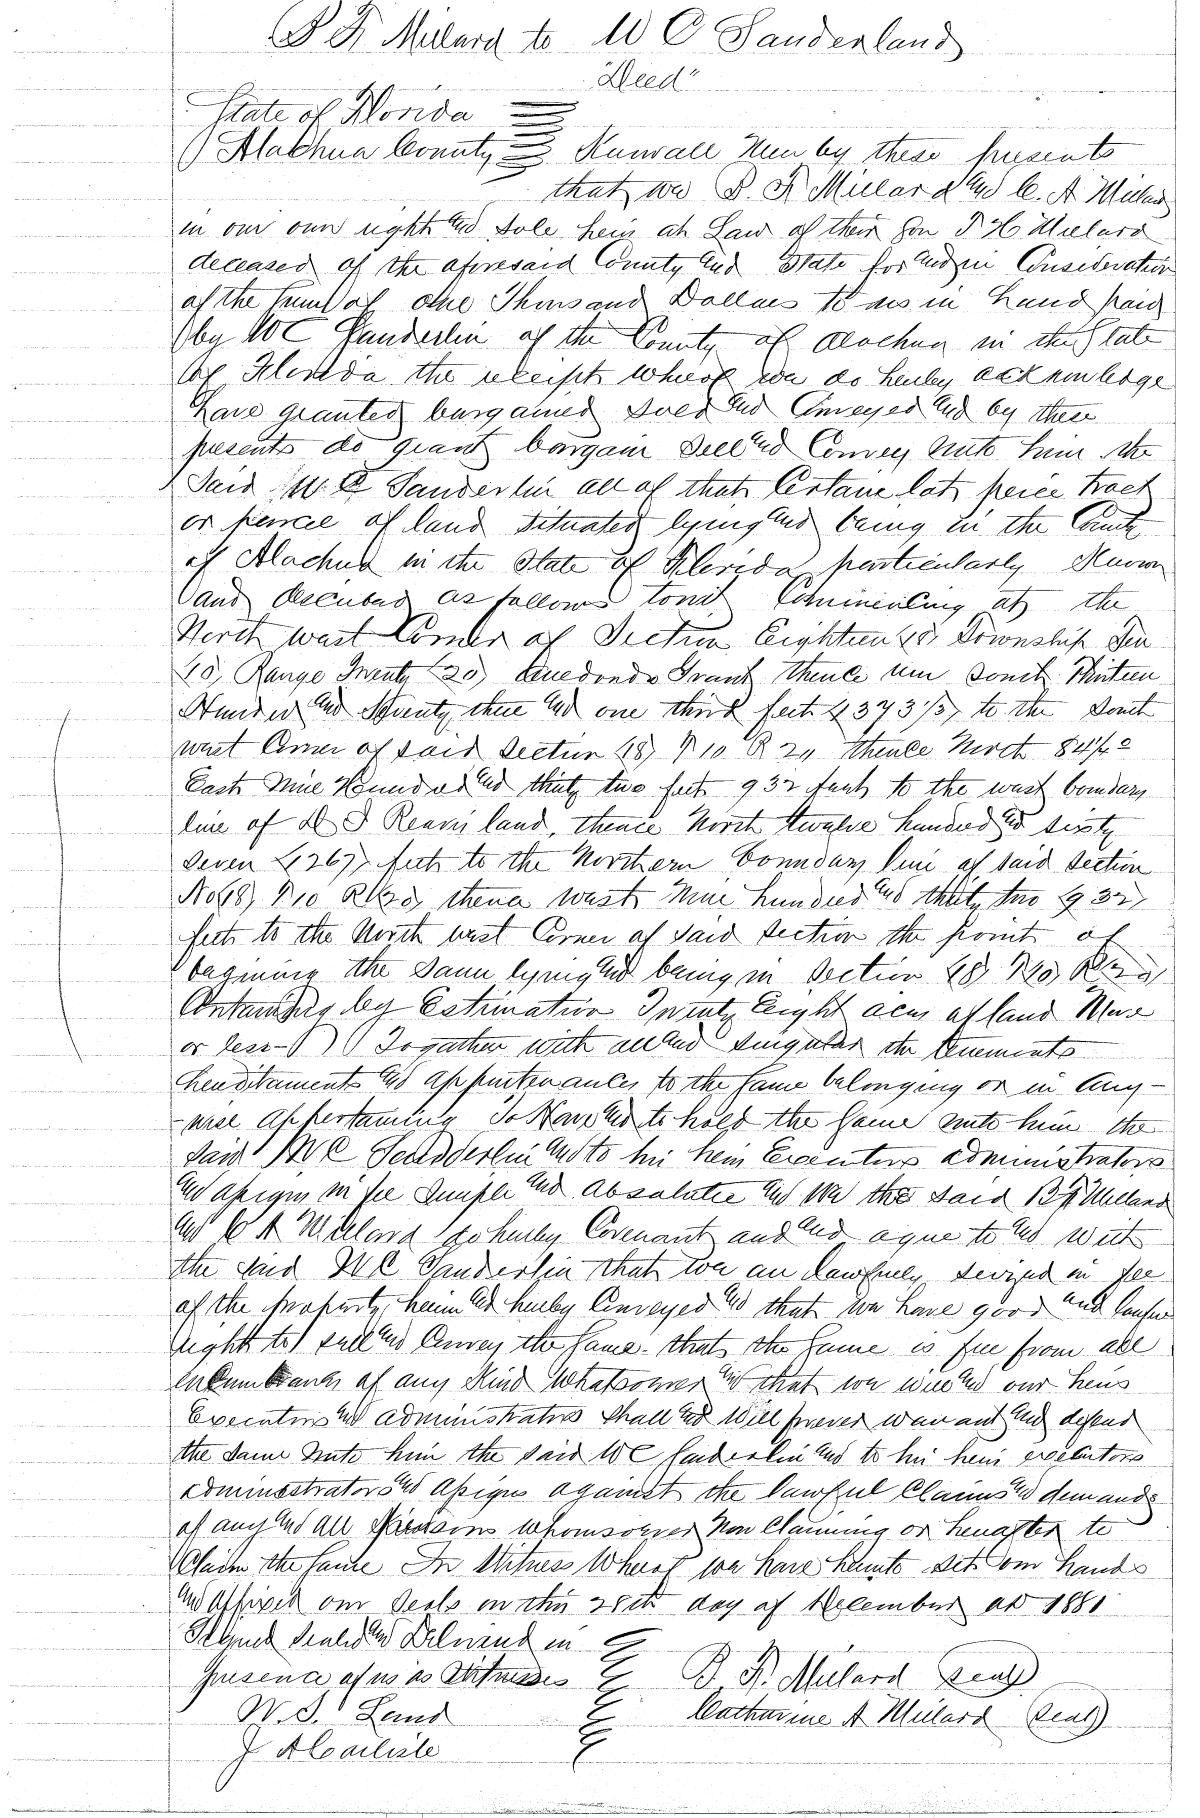 B F Millard to W C Sanderland
"Deed"
State of Florida
Alachua County Know all Men by these presents
that we B. F. Millard and C. A Millard
in our own right and sole heirs at Law of their son T H Millard
deceased of the aforesaid County and State for and in Consideration
of the Sum of one Thousand Dollars to us in hand paid
by W C Sanderlin of the County of Alachua in the State
of Florida the receipt whereof we do hereby acknowledge
have granted bargained sold and Conveyed and by these
presents do grant bargain sell and Convey unto him the
Said W. C Sanderlin all of that Certain lot peice tract
or parcel of land situated lying and being in the County
of Alachua in the State of Florida particularly Known
and described as follows towit Commencing at the
North west Corner of Section Eighteen (18) Township Ten
(10) Range Twenty (20) Arredondo Grant thence run south Thirteen
Hundred and Seventy three and one third feet (1373 1/3) to the south
west Corner of said section (18) T 10 R 20 thence North 84 1/2°
East Nine Hundred and thirty two feet 932 feet to the west boundary
line of D J Reavis land, thence North twelve hundred and sixty
seven (1267) feet to the Northern boundary line of said section
No (18) T 10 R (20) thence west Nine hundred and thirty two (932)
feet to the North west Corner of said section the point of
begining the same lying and being in section (18) T 10) R (20)
Containing by Estimation Twenty Eight acres of land More
or less () () Together with all and singular the tenements
hereditaments and appurtenances to the same belonging or in any-
-wise appertaining To Have and to hold the same unto him the
said W C Sandderlin and to his heirs Executors administrators
and assigns in fee simple and absolute and We the said B F Millard
and C A Millard do hereby Covenant and and agree to and with
the said W C Sanderlin that we are lawfully seized in fee
of the property herein and hereby Conveyed and that we have good and lawful
right to sell and Convey the same. that the same is free from all
incumbrances of any Kind whatsoever and that we will and our heirs
Executors and administrators shall and will forever warrant and defend
the same unto him the said W C Sanderlin and to his heirs executors
administrators and assigns against the lawful Claims and demands
of any and all persons whomsoever Now Claiming or hereafter to
Claim the same In Witness Whereof we have hereunto set our hands
and affixed our seals on this 28th day of December AD 1881
Signed sealed and Delivered in
presence of us as Witnesses B. F. Millard (seal)
W. S. Land Catharine A Millard (seal)
J A Carlisle